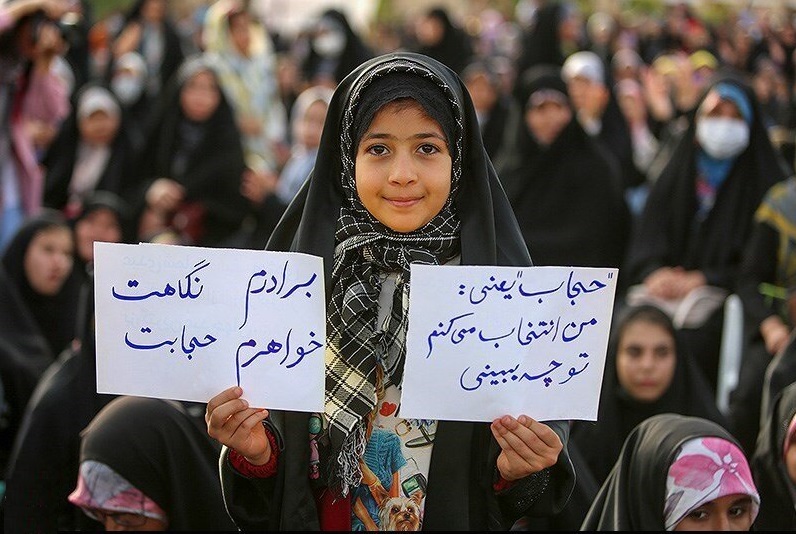 "حجاب" یعنی:
من انتخاب می‌کنم
تو چه ببینی
برادرم نگاهت
خواهرم حجابت